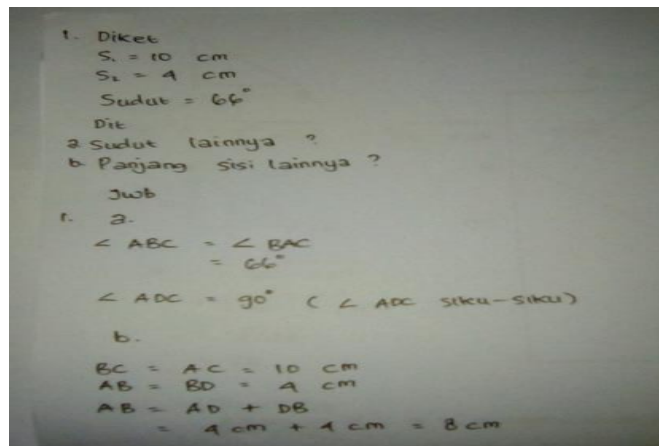 1. Diket
S₁ = 10 cm
S₂ = 4 cm
Sudut = 66°
Dit
a Sudut lainnya ?
b. Panjang sisi lainnya ?
Jwb
1. a.
∠ ABC = ∠ BAC
= 66°
∠ ADC = 90° ( ∠ ADC siku-siku)
b.
BC = AC = 10 cm
AB = BD = 4 cm
AB = AD + DB
= 4 cm + 4 cm = 8 cm